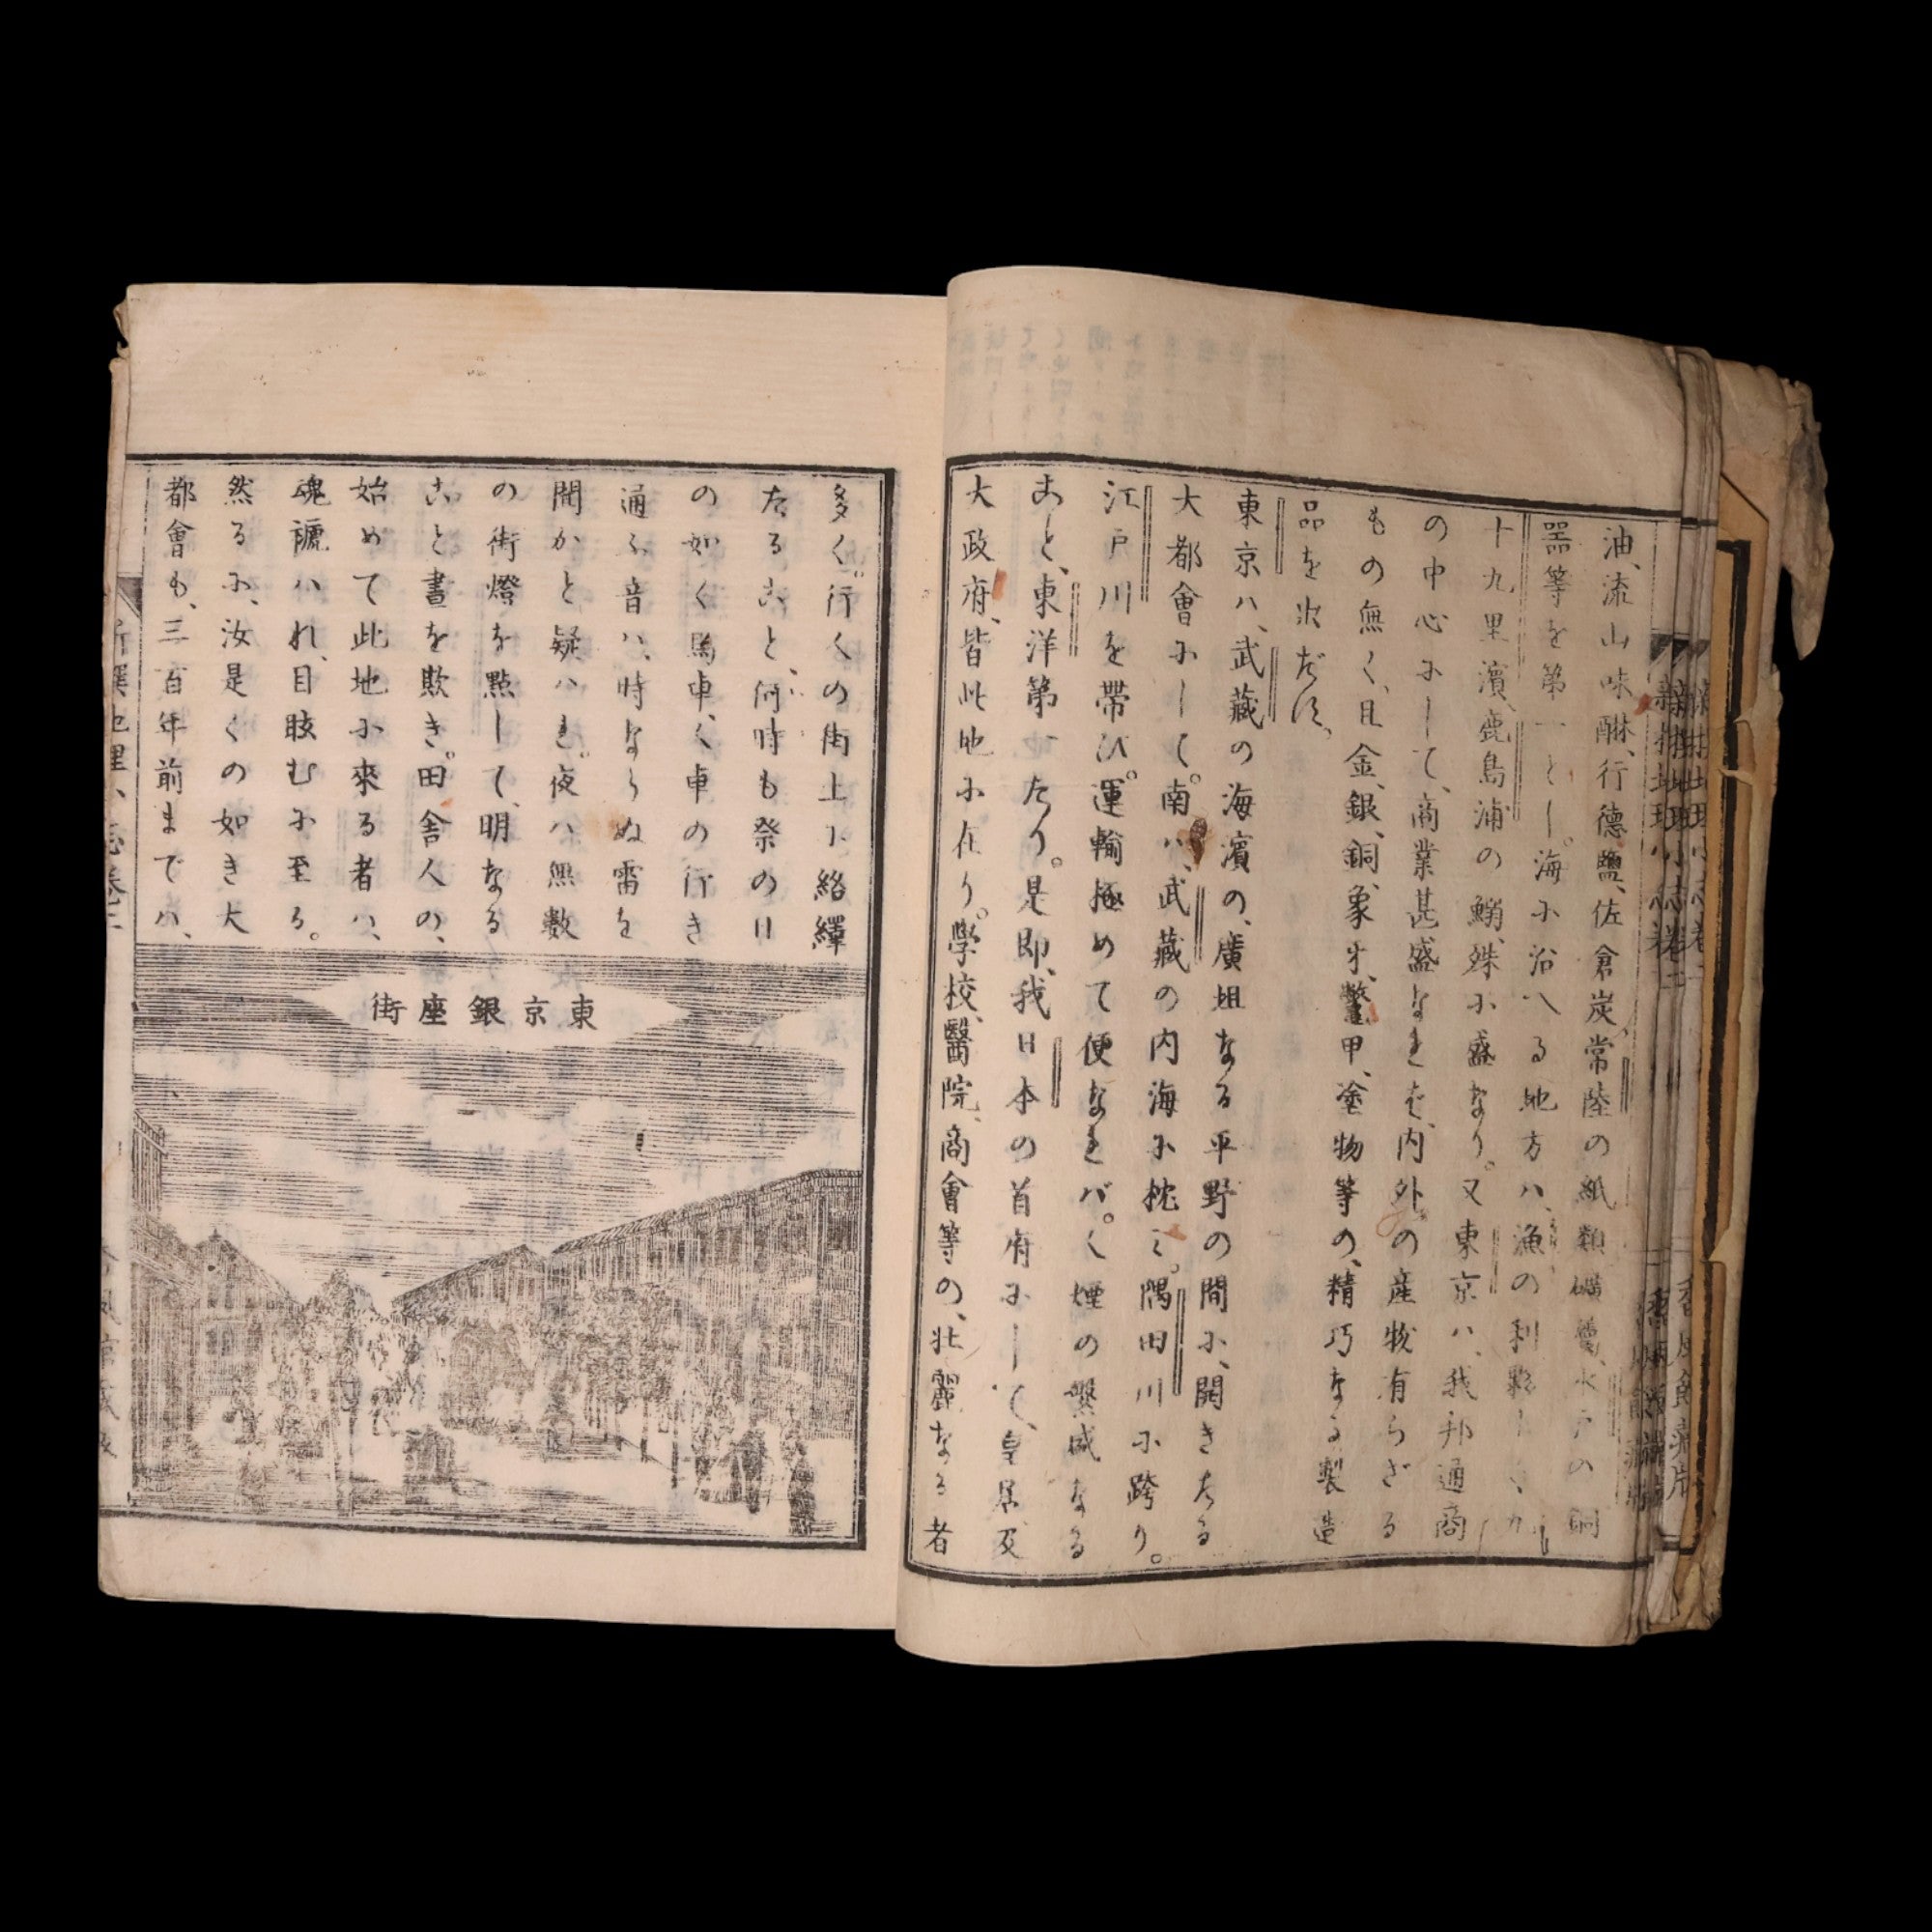 油、流山味醂、行德鹽、佐倉炭、常陸の紙類礦
器等を第一とし。海ふ沿へる地方ハ、漁の利
十九里濱、鹿島浦の鰯、殊ふ盛なり。又東京ハ、我邦通商
の中心ふして、商業甚盛なれど、内外の産物有らざる
もの無く、且金、銀、銅、象牙、鼈甲、塗物等の、精巧なる製造
品を出だす。
東京ハ、武藏の海濱の、廣坦なる平野の間ふ、開きたる
大都會ふして。南ハ、武藏の内海ふ枕ミ。隅田川ふ跨り。
江戸川を帶び。運輸極めて便なれバ。く煙の繁盛なる
あと、東洋第一たり。是即、我日本の首府ふして、皇居及
大政府、皆此地ふ在り。學校、醫院、商會等の、壯麗なる者
多く。行くの街上ふ絡繹
たるあと、何時も祭の日
の如く馬車、く車の行き
通ふ音ハ、時ならぬ雷を
聞かと疑ハれ。夜ハ無數
の街燈を點して、明なる
あと晝を欺き。田舎人の、
始めて此地ふ來る者ハ、
魂褫ハれ、目眩むふ至る。
然るふ、汝是くの如き大
都會も、三百年前までハ、
東京銀座街